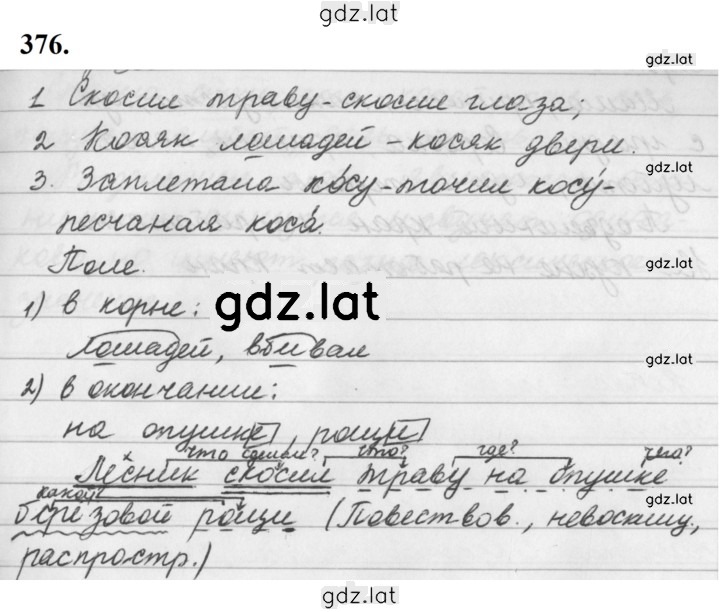 gdz.lat
376.
gdz.lat
1 Скосил траву - скосил глаза;
2 Косяк лошадей - косяк двери.
gdz.lat
3. Заплетала ко́су - точил косу́ -
песчаная коса́.
Поле.
gdz.lat
1) в корне:
gdz.lat
лошадей, вбивал
gdz.lat
2) в окончании:
на опушке, рощи
что сделал? что? где? чего?
Лесник скосил траву на опушке
какой?
gdz.lat
берёзовой рощи (Повествов., невосклиц.,
распростр.)
gdz.lat
gdz.lat